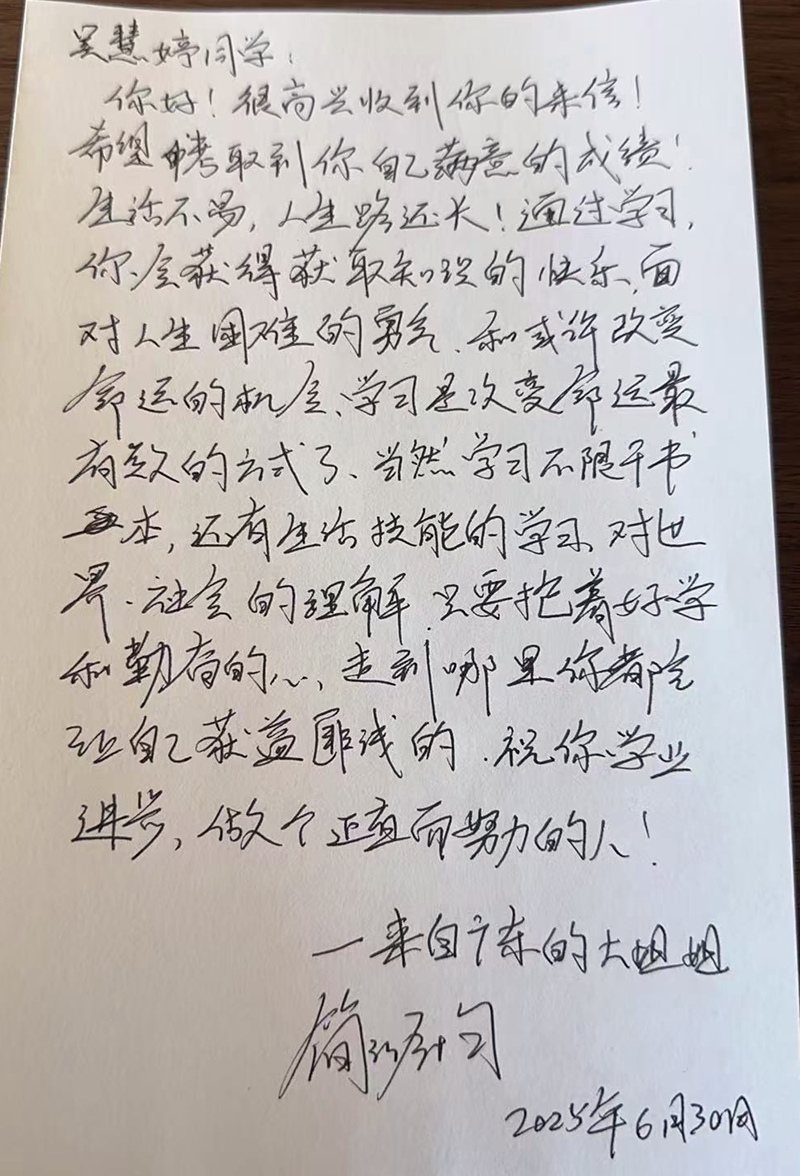 吴慧婷同学:
你好！很高兴收到你的来信！
希望中考取到你自己满意的成绩！
生活不易，人生路还长！通过学习，
你会获得获取知识的快乐、面
对人生困难的勇气、和或许改变
命运的机会、学习是改变命运最
有效的方式了、当然学习不限于书
本，还有生活技能的学习、对世
界、社会的理解、只要抱着好学
和勤奋的心、走到哪里你都会
让自己获益匪浅的、祝你学业
进步，做个正直而努力的人！
一来自广东的大姐姐
简
2025年6月30日